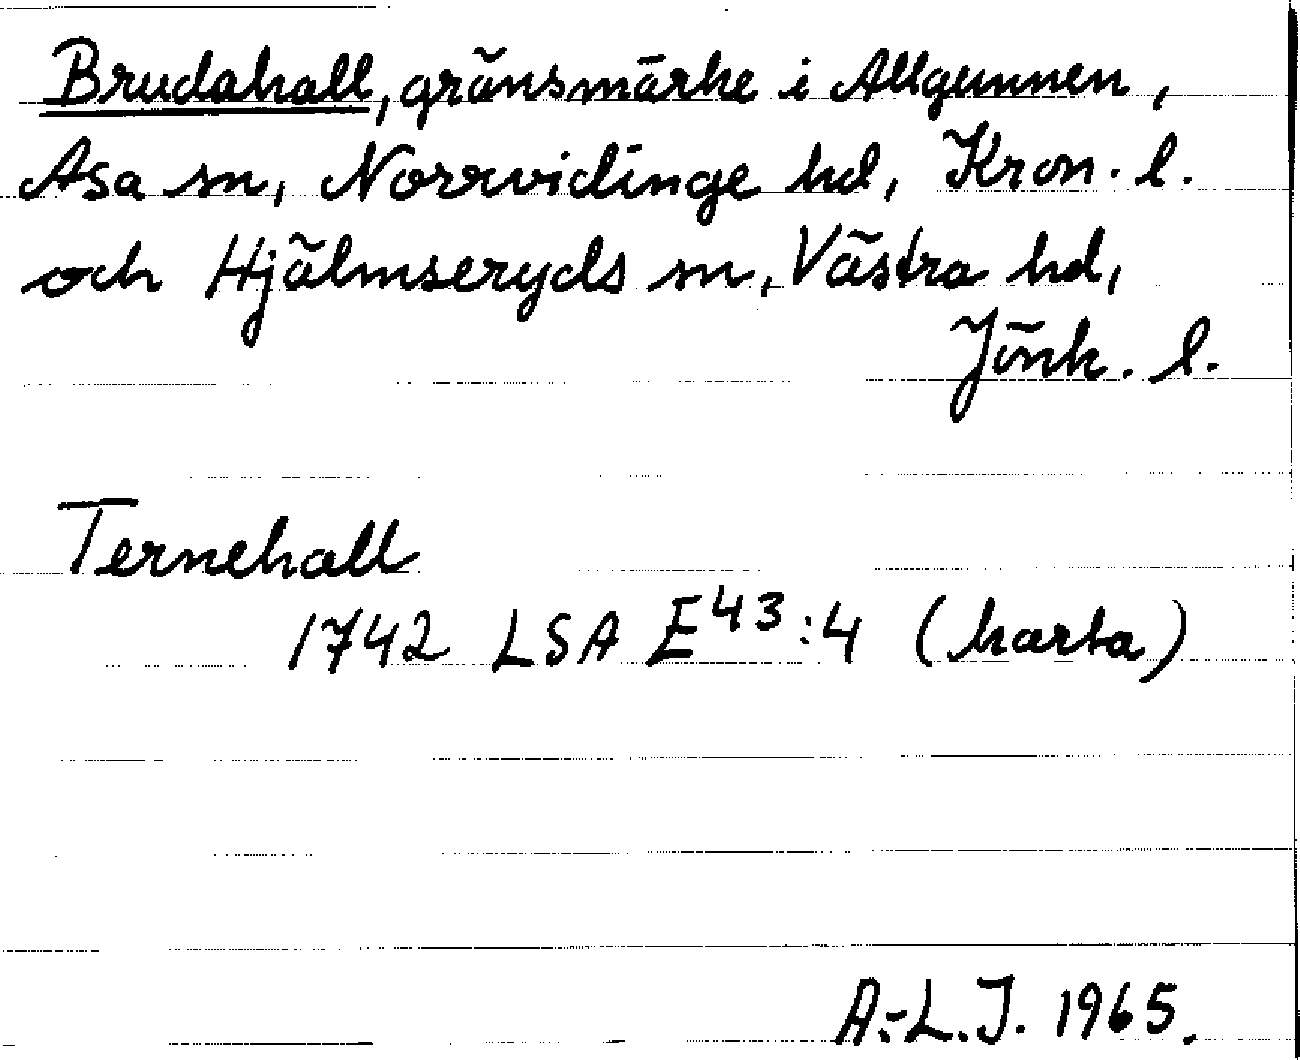 Brudahall, gränsmärke i Allgunnen,
Asa sn, Norrvidinge hd, Kron. l.
och Hjälmseryds sn, Västra hd,
Jönk. l.
Ternehall
1742 LSA E43:4 (karta)
A.-L.J. 1965.